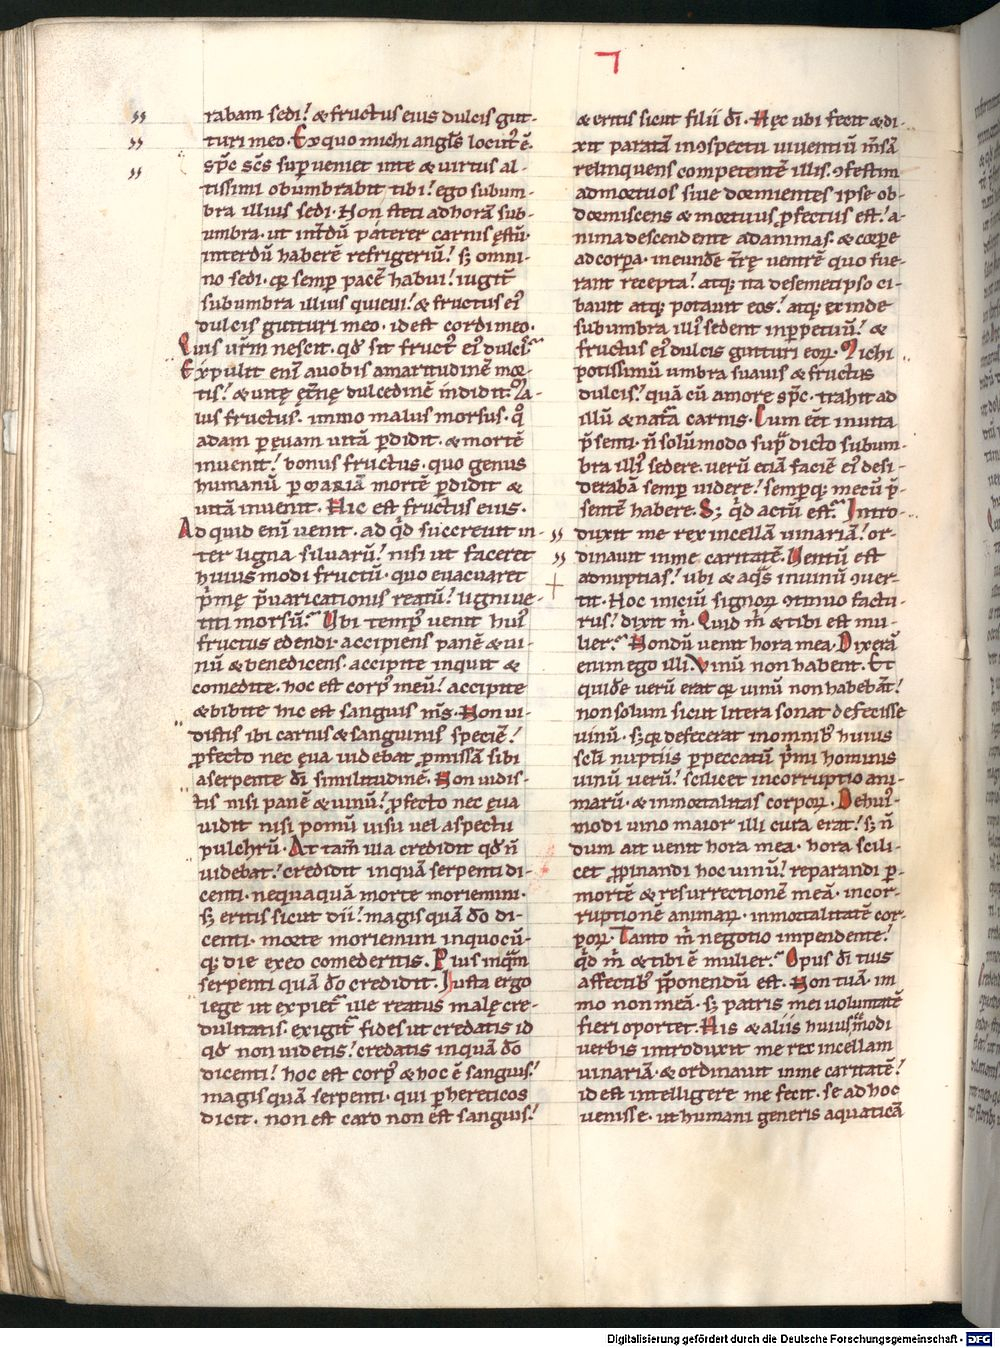 rabam sedi. & fructus eius dulcis gut-
turi meo. Ex quo michi angls̄ locutꝰ ē.
sp̄c sc̄s superveniet in te & virtus al-
tissimi obumbrabit tibi. ego subum-
bra illius sedi. Non steti ad horā sub-
umbra. ut int̄dū paterer carnis ęstū.
interdū haberē refrigeriū. sꝫ omni-
no sedi. qr semꝑ pacē habui. iugit̄
sub umbra illius quievi. & fructus eiꝰ
dulcis gutturi meo. id est cordi meo.
Quis vr̄m nescit. qd̄ sit fructꝰ eiꝰ dulcis.
Expulit enī a vobis amaritudinē mor-
tis. & vitę ęt̄nę dulcedinē indidit. Ma-
lus fructus. immo malus morsus. q̊
adam ꝑ ęvam vitā ꝑdidit. & mortē
invenit. bonus fructus. quo genus
humanū ꝑ MARIĀ mortē ꝑdidit &
vitā invenit. Hic est fructus eius.
Ad quid enī venit. ad qd̄ succrevit in-
ter ligna silvarū. nisi ut faceret
huius modi fructū. quo evacuaret
p̄mę p̄varicationis reatū. ligni ve-
titi morsū. Ubi tempꝰ venit huiꝰ
fructus edendi. accipiens panē & vi-
nū & benedicens. accipite inquit &
comedite. hoc est corpꝰ meū. accipite
& bibite hic est sanguis m̄s. Non vi-
distis ibi carnis & sanguinis speciē.
ꝓfecto nec ęva videbat p̄missā sibi
a serpente dī similitudinē. Non vidis-
tis nisi panē & vinū. ꝓfecto nec ęva
vidit nisi pomū visu vel aspectu
pulchrū. At tam̄ illa credidit qd̄ ñ
videbat. credidit inquā serpenti di-
centi. nequaquā morte moriemini.
sꝫ eritis sicut dii. magis quā dō di-
centi. morte moriemini in quocū-
qꝫ die ex eo comederitis. Prius inquā
serpenti quā dō credidit. Justa ergo
lege ut expiet̄ ille reatus malę cre-
dulitatis. exigit̄ fides ut credatis id
qd̄ non videtis. credatis inquā dō
dicenti. hoc est corpꝰ & hoc ē sanguis.
magis quā serpenti. qui ꝑ hereticos
dicit. non est caro non est sanguis.
& eritis sicut filii dī. Hęc ubi fecit & di-
xit paratā in ꝯspectu viventiū m̄sā
relinquens competentē illis. ꝯfestim
ad mortuos sive dormientes ipse ob-
dormiscens & mortuus ꝓfectus est. a-
nima descendente ad animas. & corpore
ad corpora. in eundē t̄rę ventrē quo fue-
rant recepta. atqꝫ ita de semetipso ci-
bavit atqꝫ potavit eos. atqꝫ ex inde
sub umbra illiꝰ sedent in ꝑpetuū. &
fructus eiꝰ dulcis gutturi eoꝝ. Michi
potissimū umbra suavis & fructus
dulcis. quā cū amore sp̄c. trahit ad
illū & nat̄a carnis. Cum eēt in vita
p̄senti. ñ solūmodo sup̄dicto subum-
bra illiꝰ sedere. verū etiā faciē eiꝰ desi-
derabā semper videre. semperqꝫ mecū p̄-
sentē habere. Sꝫ qd̄ actū est. Intro-
duxit me rex in cellā vinariā. or-
dinavit in me caritatē. Ventū est
ad nuptias. ubi & aqᵃs in vinū ꝯver-
tit. Hoc iniciū signoꝝ ꝯtinuo factu-
rus. dixit m̄. Quid m̄ & tibi est mu-
lier. Nondū venit hora mea. Dixerā
enim ego illi. Vinū non habent. Et
quidē verū erat qr vinū non habebāt.
non solum sicut litera sonat defecisse
vinū. sꝫ qr defecerat in omnibꝰ huius
sclī nuptiis ꝑ peccatū p̄mi hominis
vinū verū. scilicet incorruptio ani-
marū. & inmortalitas corpoꝝ. De huiꝰ-
modi vino maior illi cura erat. sꝫ ñ
dum ait venit hora mea. hora scili-
cet ꝓpinandi hoc vinū. reparandi ꝑ
mortē & resurrectionē meā. incor-
ruptionē animaꝝ. inmortalitatē cor-
poꝝ. Tanto m̄ negotio impendente.
qd̄ m̄ & tibi ē mulier. Opus dī tuis
affectibꝰ p̄ponendū est. Non tuā. im-
mo non meā. sꝫ patris mei voluntatē
fieri oportet. His & aliis huiusmodi
verbis introduxit me rex in cellam
vinariā. & ordinavit in me caritatē.
id est intelligere me fecit. se ad hoc
venisse. ut humani generis aquaticā
Digitalisierung gefördert durch die Deutsche Forschungsgemeinschaft - DFG